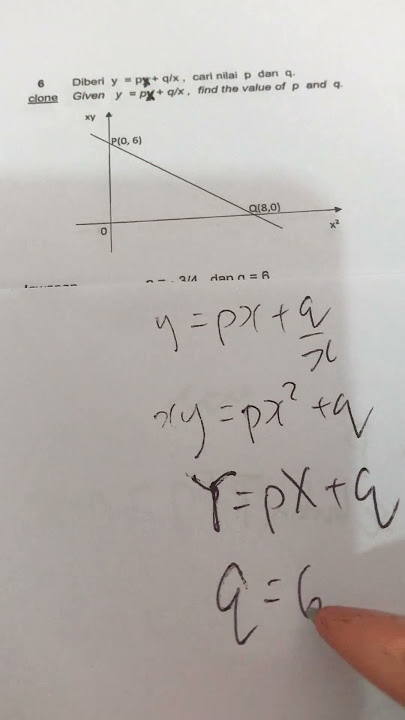 6 Diberi y = px + q/x , cari nilai p dan q.
clone Given y = px + q/x , find the value of p and q.
xy
P(0, 6)
Q(8,0)
0
x²
dan q = 6
y = px + q/x
xy = px² + q
Y = pX + q
q = 6